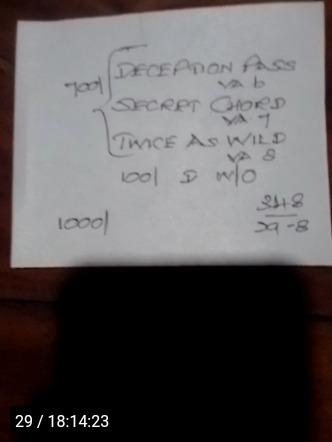 DECEPTION PASS
VA 6
700/ SECRET CHORD
VA 7
TWICE AS WILD
VA 8
100/ D W/O
1000/
34-8
29-8
29 / 18:14:23